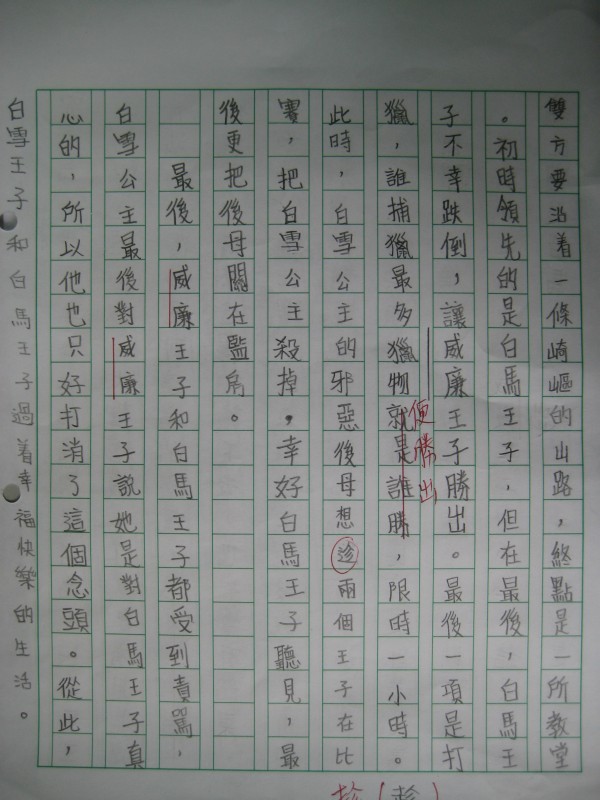 雙方要沿着一條崎嶇的山路，終點是一所教堂
。初時領先的是白馬王子，但在最後，白馬王
子不幸跌倒，讓威廉王子勝出。最後一項是打
獵，誰捕獵最多獵物就是誰勝，限時一小時。
便勝出
此時，白雪公主的邪惡後母想趁兩個王子在比
賽，把白雪公主殺掉，幸好白馬王子聽見，最
後更把後母關在監房。
最後，威廉王子和白馬王子都受到責罵，
白雪公主最後對威廉王子說她是對白馬王子真
心的，所以他也只好打消了這個念頭。從此，
白雪王子和白馬王子過着幸福快樂的生活。